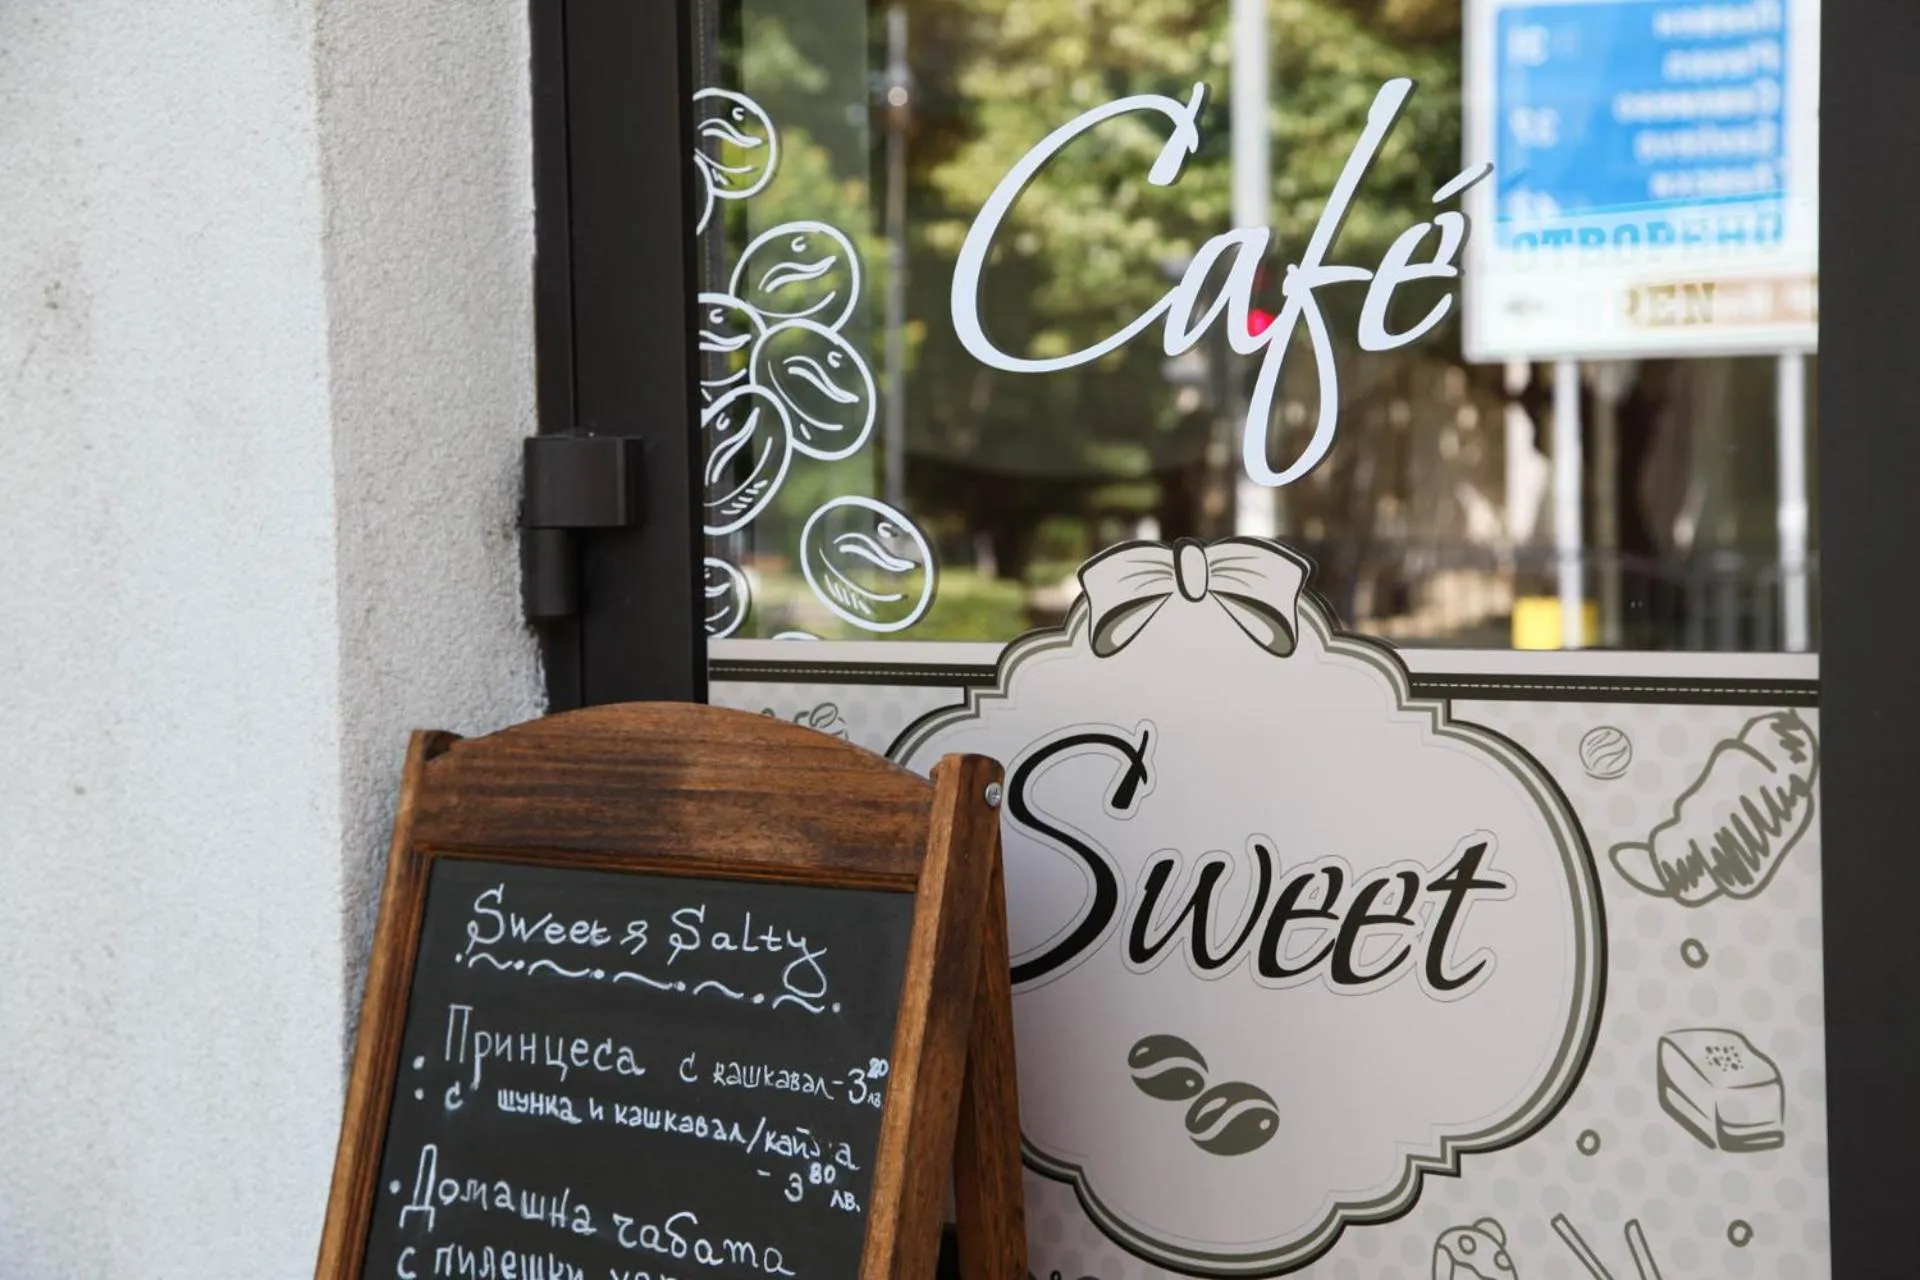 Café
ОТВОРЕНО
Sweet
Sweet & Salty
Принцеса с кашкавал - 3 20 лв.
с шунка и кашкавал/кайма
- 3 80 лв.
Домашна чабата
с пилешки